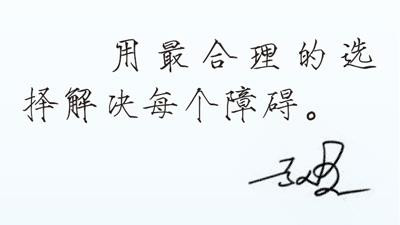 用最合理的选
择解决每个障碍。